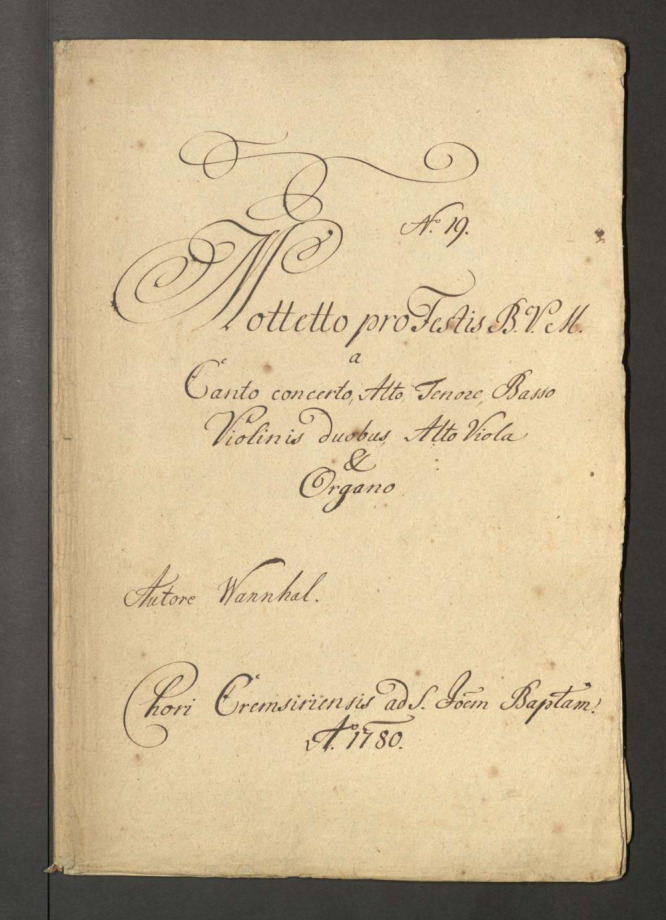 No. 19.
Mottetto pro Festis B. V. M.
a
Canto concerto, Alto, Tenore, Basso
Violinis duobus, Alto Viola
&
Organo
Autore Wannhal.
Chori Cremsiriensis ad S. Joēm Baptam:
Ao. 1780.